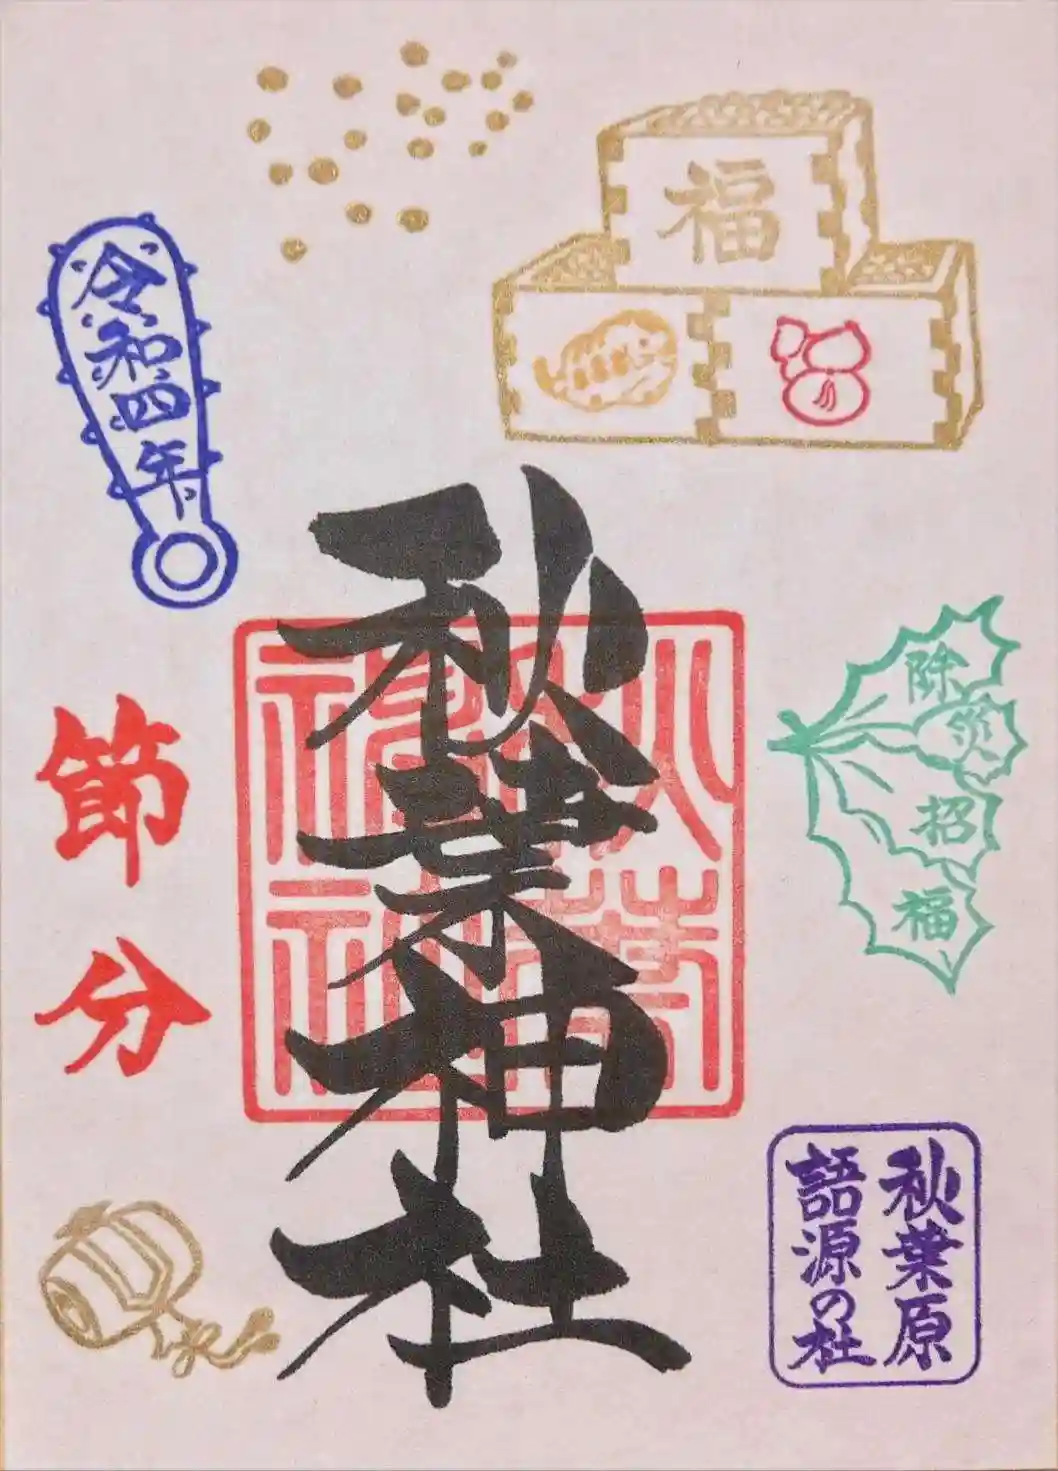 福
令和四年
秋葉神社
節分
除災招福
秋葉神社
秋葉原
語源の社